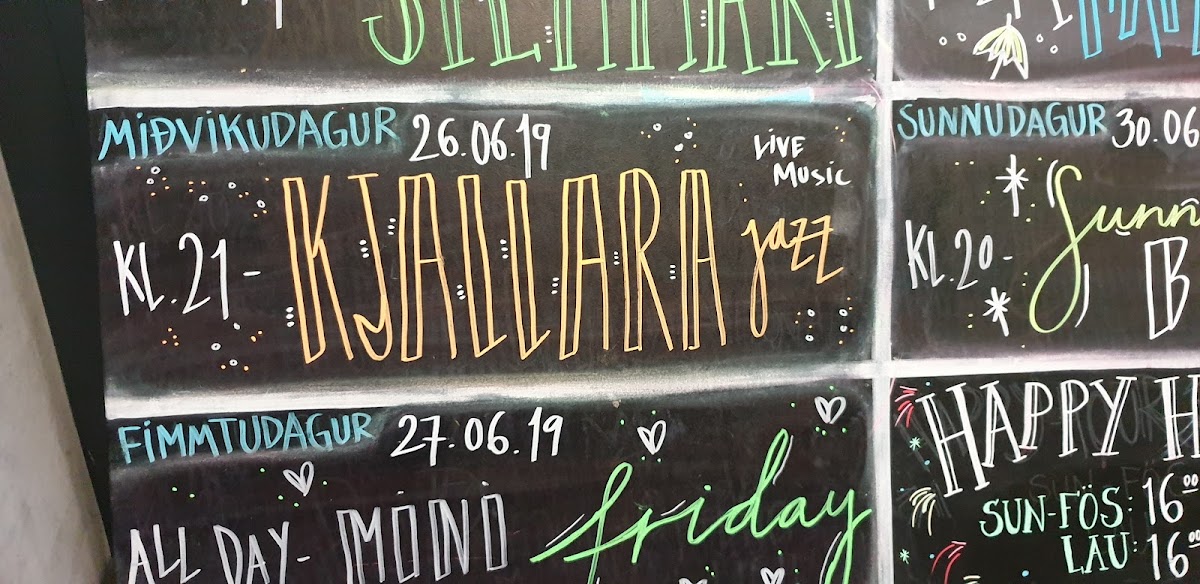 MIÐVIKUDAGUR 26.06.19
LIVE
MUSIC
KL.21- KJALLARA jazz
FIMMTUDAGUR 27.06.19
ALL DAY- MINI friday
SUNNUDAGUR 30.06
KL.20-
B
HAPPY H
SUN-FÖS: 16⁰⁰
LAU: 16⁰⁰